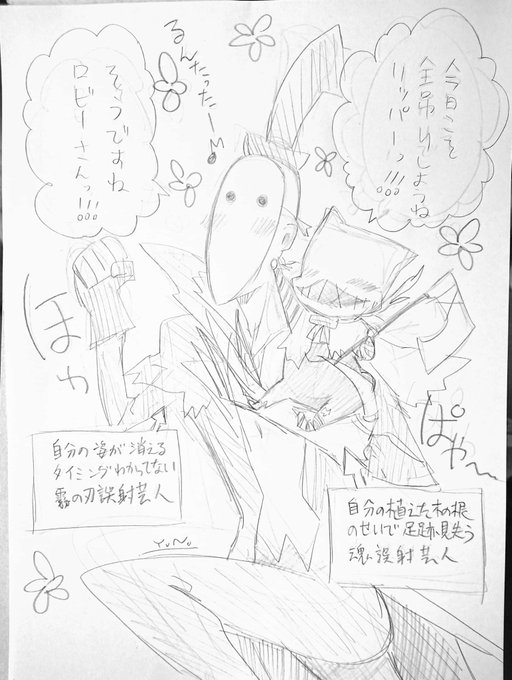 今日こそ
全吊りしようね
リッパーっ!!!
るんたったー♪
そうですね
ロビーさんっ!!!
ほわ
ぱや〜
自分の姿が消える
タイミングわかってない
霧の刃誤射芸人
自分の植えた木の根
のせいで足跡見失う
魂誤射芸人
YuNo